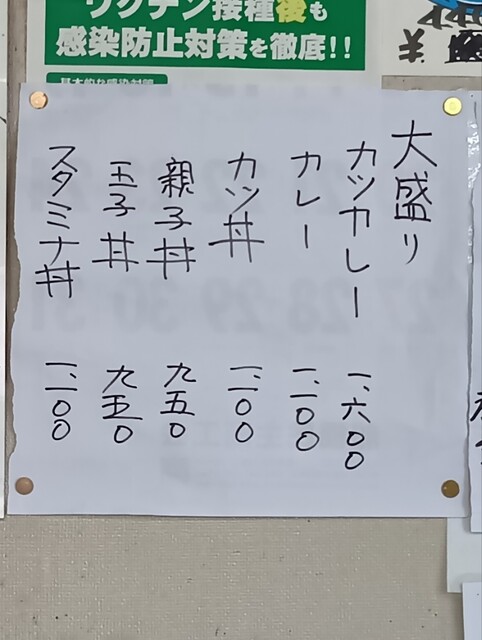 ワクチン接種後も
感染防止対策を徹底!!
大盛り
カツカレー 一、六〇〇
カレー 一、一〇〇
カツ丼 一、一〇〇
親子丼 九五〇
玉子丼 九五〇
スタミナ丼 一、一〇〇